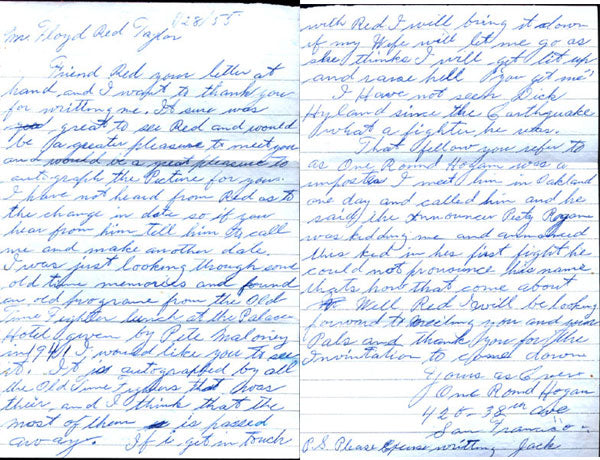 1/28/55
Mr. Floyd Red Taylor
Friend Red your letter at
hand, and I want to thank you
for writting me. It sure was
great to see Red and would
be a greater pleasure to meet you
and would be a great pleasure to
autograph the Picture for you.
I have not heard from Red as to
the change in date so if you
hear from him tell him to call
me and make another date.
I was just looking through some
old time memories and found
an old programe from the Old
Time Fighter lunch at the Palace
Hotel, given by Pete Maloney
in 1941 I would like you to see
it. It is autographed by all
the Old Time Fighters that was
their, and I think that the
most of them is passed
away. If i get in touch
with Red I will bring it down
if my Wife will let me go as
she thinks I will get lit up
and raise hell "you get me"
I Have not seen Dick
Hyland since the Earthquake
what a fighter he was.
That fellow you refer to
as One Round Hogan was a
imposter I meet him in Oakland
one day and called him and he
said, the Announcer Pesty
was kidding me and announced
this kid in hes first fight he
could not pronounce his name.
thats how that come about
Well Red I will be looking
forward to meeting you and your
Pals and thank you for the
Invitation to come down
Yours as Ever.
One Round Hogan
420-38th Ave
San Francisco-
P.S. Please Excuse writting Jack